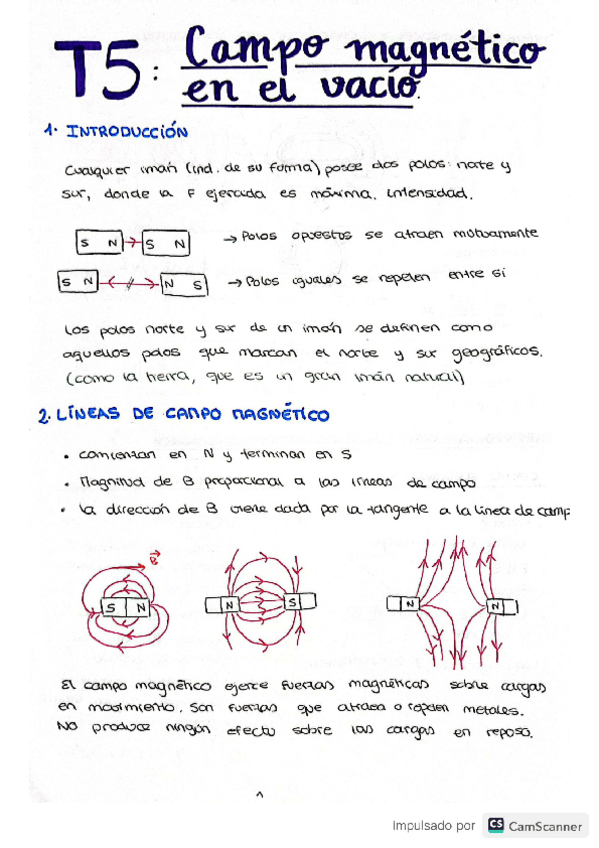 T5: Campo magnético
en el vacío.
1. INTRODUCCIÓN
Cualquier imán (ind. de su forma) posee dos polos: norte y
sur, donde la F ejercida es máxima. Intensidad.
S N S N → Polos opuestos se atraen mutuamente
S N N S → Polos iguales se repelen entre sí
Los polos norte y sur de un imán se definen como
aquellos polos que marcan el norte y sur geográficos.
(como la tierra, que es un gran imán natural)
2. LÍNEAS DE CAMPO MAGNÉTICO
• comienzan en N y terminan en S
• Magnitud de B proporcional a las líneas de campo
• la dirección de B viene dada por la tangente a la línea de camp
B
S N N S N N
El campo magnético ejerce fuerzas magnéticas sobre cargas
en movimiento. Son fuerzas que atraen o repelen metales.
No produce ningún efecto sobre las cargas en reposo.
Impulsado por CS CamScanner